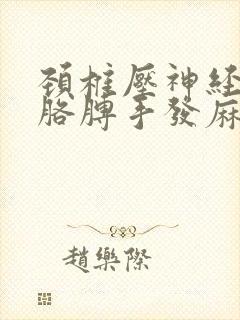 頚椎壓神経
胳膊手發麻
趙樂際